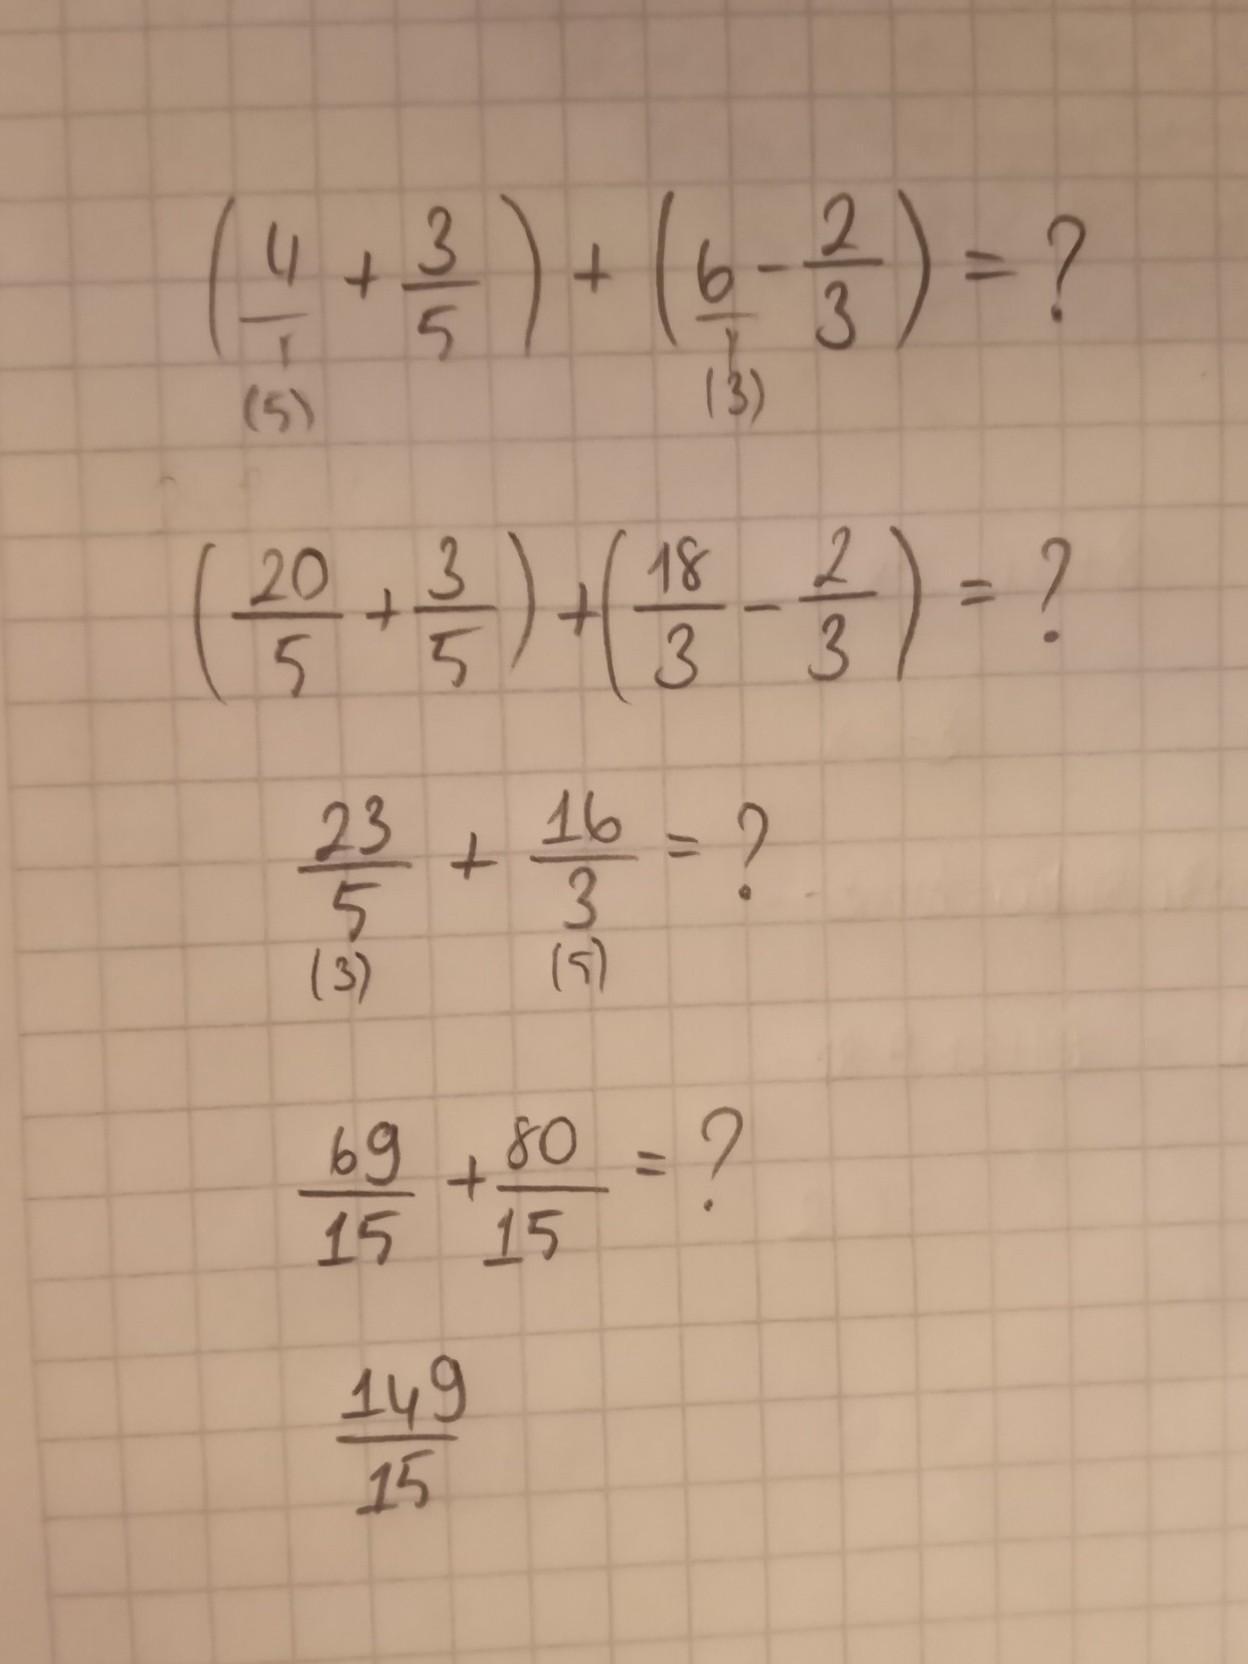 (4/1 + 3/5) + (6/1 - 2/3) = ?
(5) (3)
(20/5 + 3/5) + (18/3 - 2/3) = ?
23/5 + 16/3 = ?
(3) (5)
69/15 + 80/15 = ?
149/15